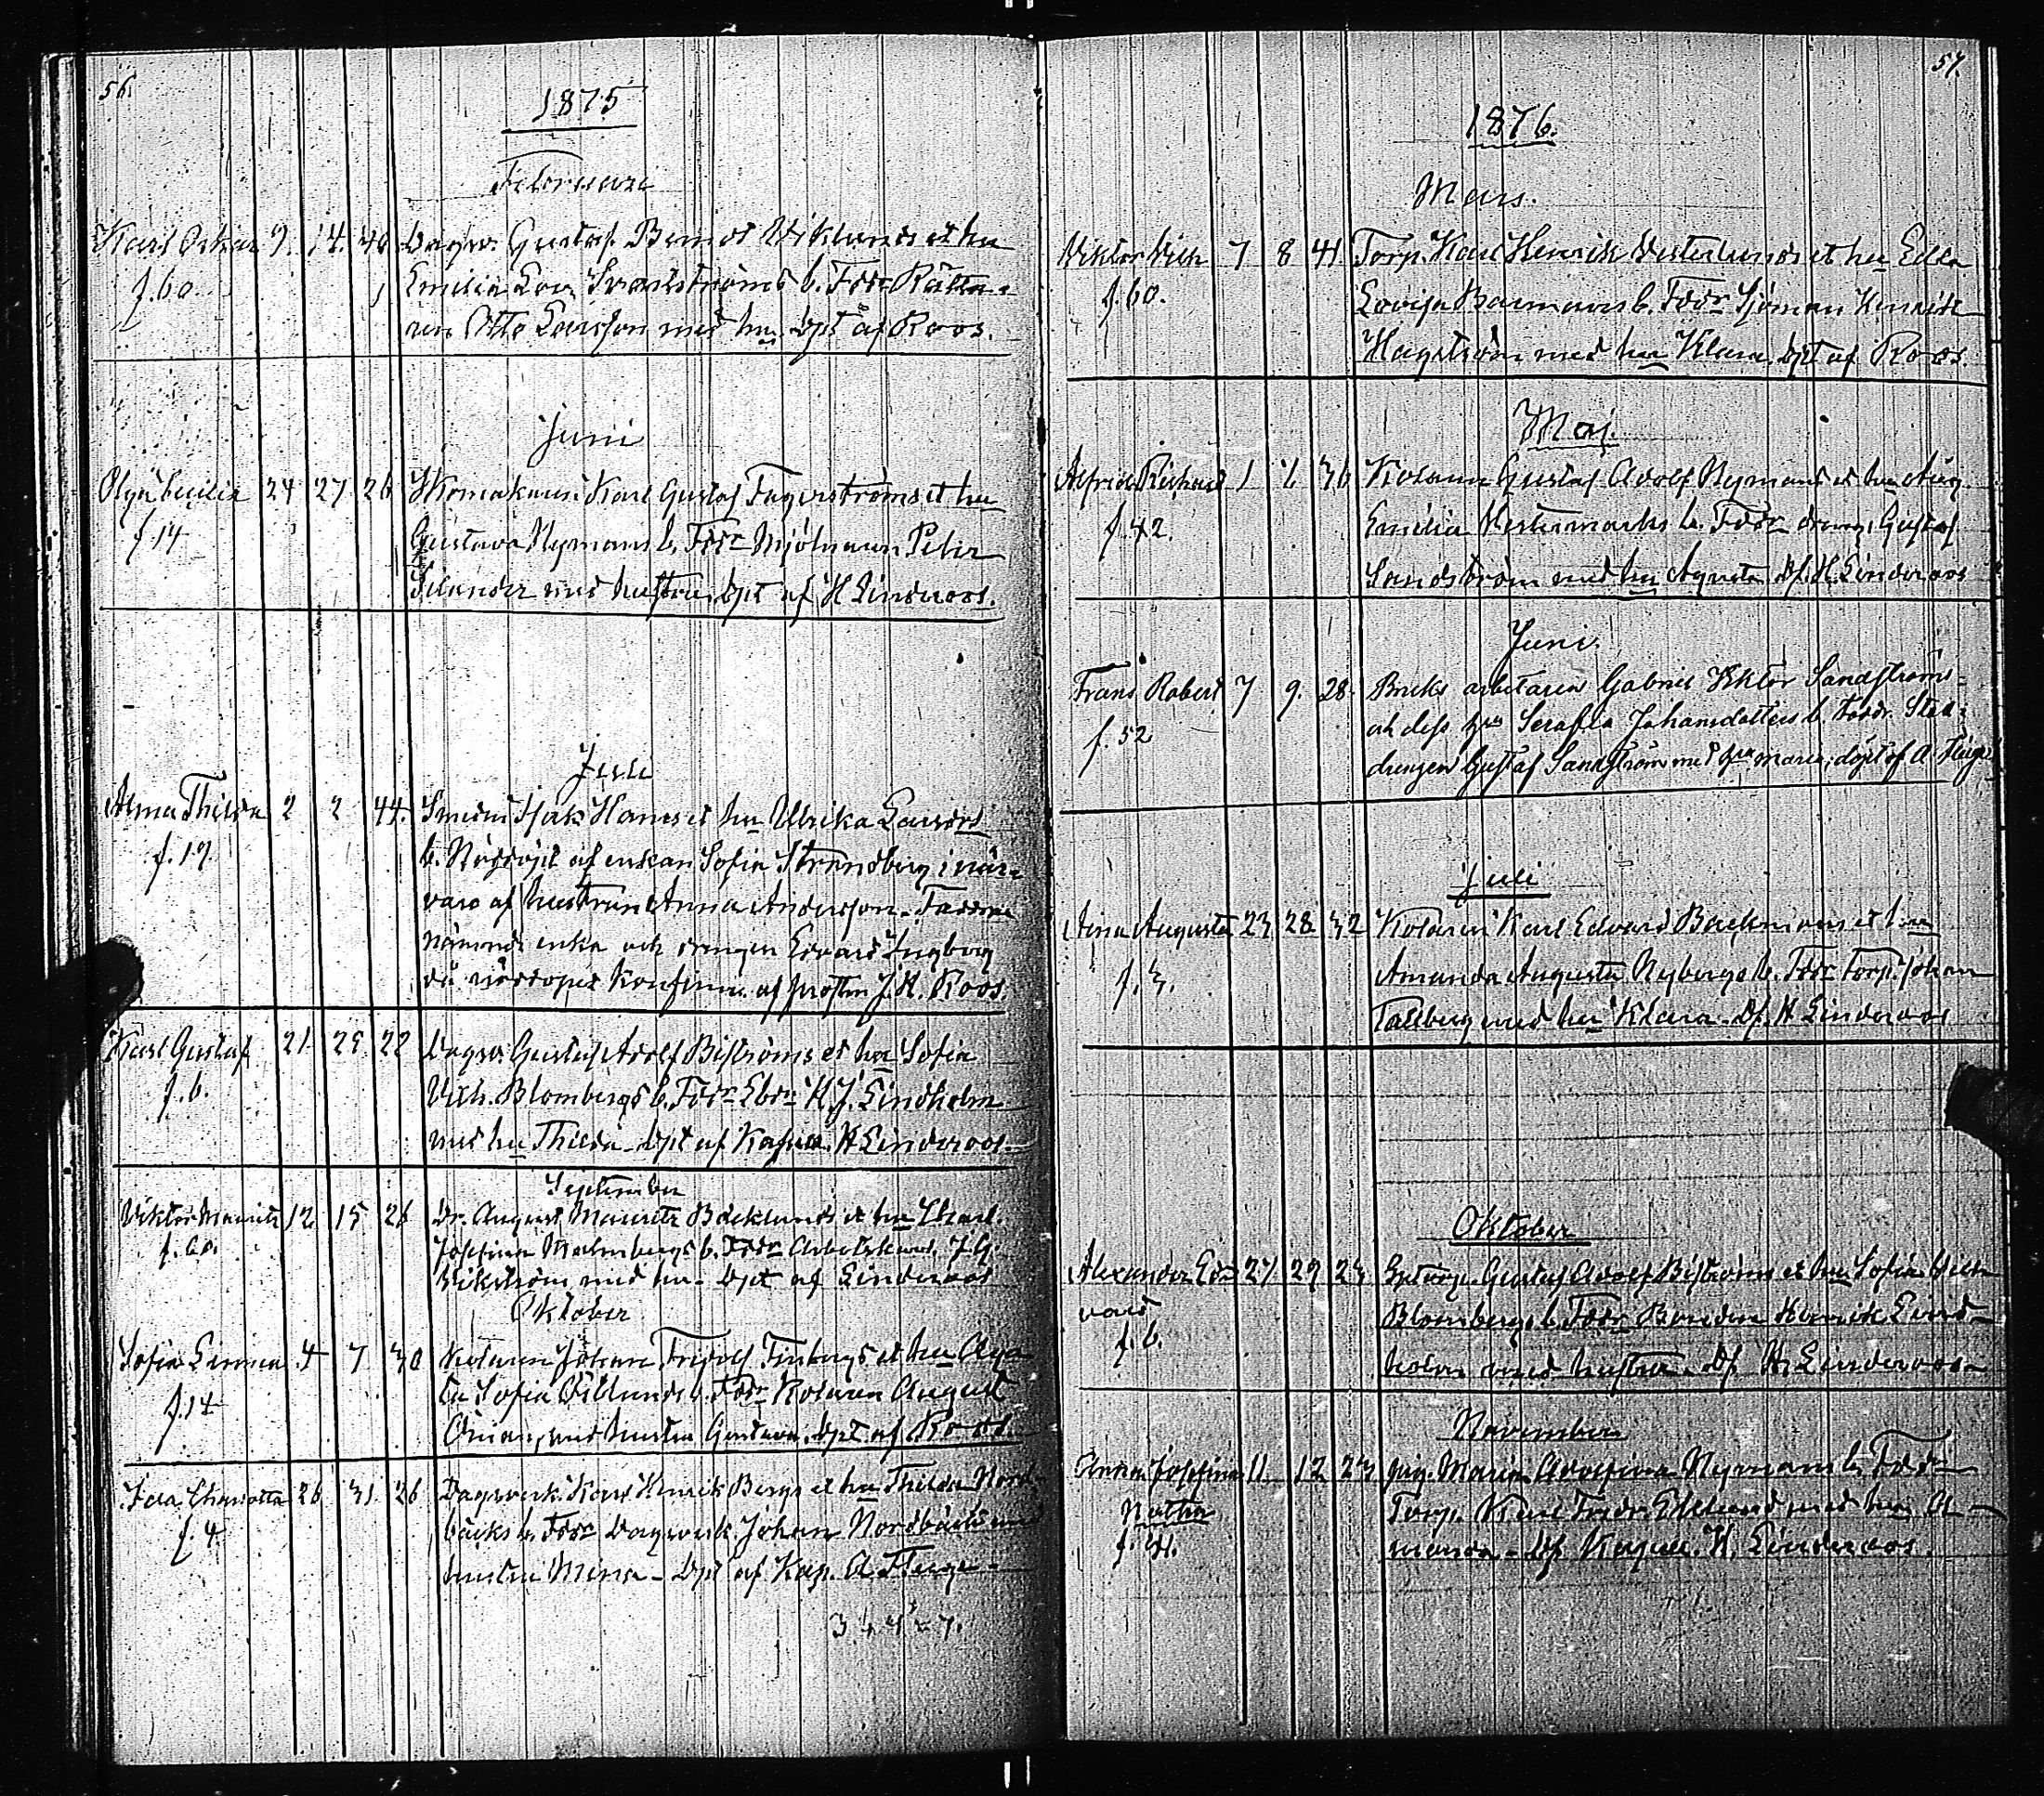 56.
1875
Februari
Karl Oskar 9. 14. 40 Dagsv. Gustaf Bernds Wiklunds et hu
f. 60 Emilia Lov. Svartströms b. Fddr Rätta-
ren Otto Larsson med hu. Dpt af Roos.
Juni
Olga Cecilia 24 27 26 Skomakaren Karl Gustaf Fagerströms et hu
f. 14 Gustava Nymans b. Fddr Mjölnaren Peter
Selander med hustru. Dpt af H Linderoos.
Juli
Alma Thilda 2 2 44. Smeden Isak Hanes et hu Ulrika Larsdrs
f. 17. b. Nöddöpt af enkan Sofia Strandberg i när-
varo af hustrun Anna Andersson. Faddrar
nämnda enka och drengen Edvard Ingberg
då nöddopet konfirm. af prosten J. H. Roos.
Karl Gustaf 21 25 22 Dagsv. Gustaf Adolf Biströms et hu Sofia
f. 6. Vilh. Blombergs b. Fddr Ebdr H J. Lindholm
med hu Thilda. Dpt af Kapla. H Linderoos.
September
Viktor Mauritz 12 15 26 Dr. August Mauritz Bäcklunds et hu
f. 60. Josefina Malmbergs b. Fddr Arbetskarl. J. G.
Wikström med hu. Dpt af Linderoos
Oktober
Sofia Emma 4 7 30 Kolaren Johan Fridolf Finbergs et hu Aga-
f. 14 ta Sofia Öhlunds b. Fddr Kolaren August
Öman, med hustru Gustava. Dpt af Roos.
Ida Charlotta 26 31. 26 Dagsverk. Karl Henrik Bergs et hu Thilda Nord-
f. 4 bäcks b. Fddr Dagsverk. Johan Nordbäck med
hustru Mina. Dpt af Kap. A. Fluge.
57.
1876.
Mars.
Viktor Vilh 7 8 41 Torp. Karl Henrik Vesterlunds et hu Edla
f. 60. Lovisa Barmans b. Fddr Sjöman Henrik
Hagström med hu Klara. Dpt af Roos.
Maj.
Alfrid Richard 1 36 Kolaren Gustaf Adolf Nymans et hu Aug.
f. 42. Emilia Vestermarks b. Fddr dreng. Gustaf
Sandström med hu Agneta. Df. H. Linderoos
Juni.
Frans Robert 7 9. 28. Bruks arbetaren Gabriel Viktor Sandströms
f. 52 och dess hu Serafia Johansdotters b. Faddr. Stal-
drengen Gustaf Sandström med hu Maria, döpt af A. Fluge
Juli
Aina Augusta 23 28 32 Kolaren Karl Edvard Backmans et hu
f. 3. Amanda Augusta Nybergs b. Fddr Torp. Johan
Tallberg med hu Klara. Df. H Linderoos
Oktober
Alexander Ed- 27 29 23 Gustaf Adolf Biströms et hu Sofia Vilh
vard Blombergs b. Fddr Bonden Henrik Lind-
f. 6. holm med hustru. Df. H. Linderoos
November
Anna Josefina 11 12 23 pig. Maria Adolfina Nymans b. Fddr
Notha Torp. Karl Fredr. Eklund med hu A-
manda. Df. Kapla. H. Linderoos.